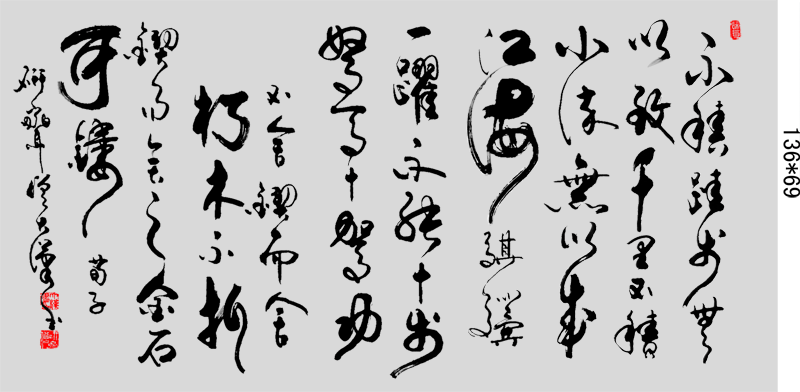 不積跬步無
以致千里不積
小流無以成
江海騏驥
一躍不能十步
駑馬十駕功
不舍鍥而舍
朽木不折
鍥而舍之金石
可鏤 荀子
136*69